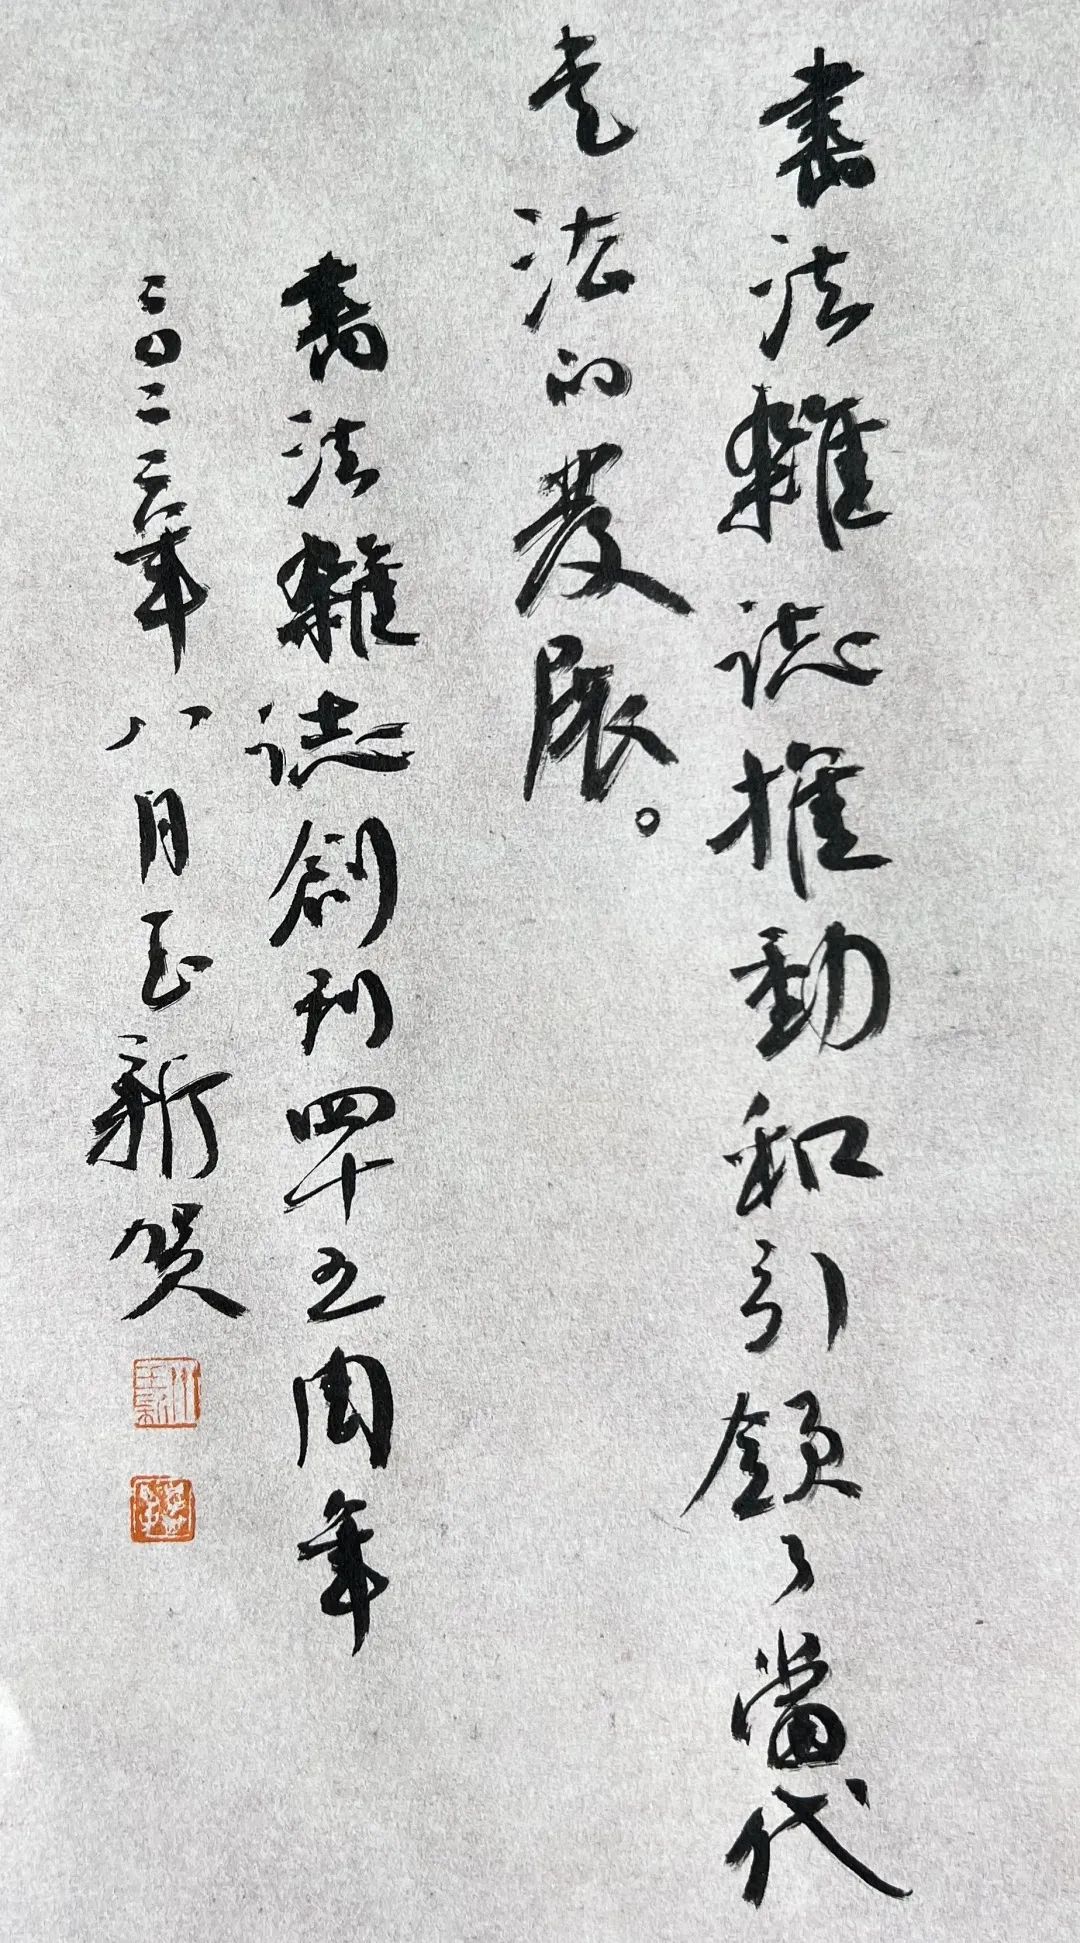 書法雜誌推動和引領了當代
書法的發展。
書法雜誌創刊四十五周年
二〇二二年八月王新贺